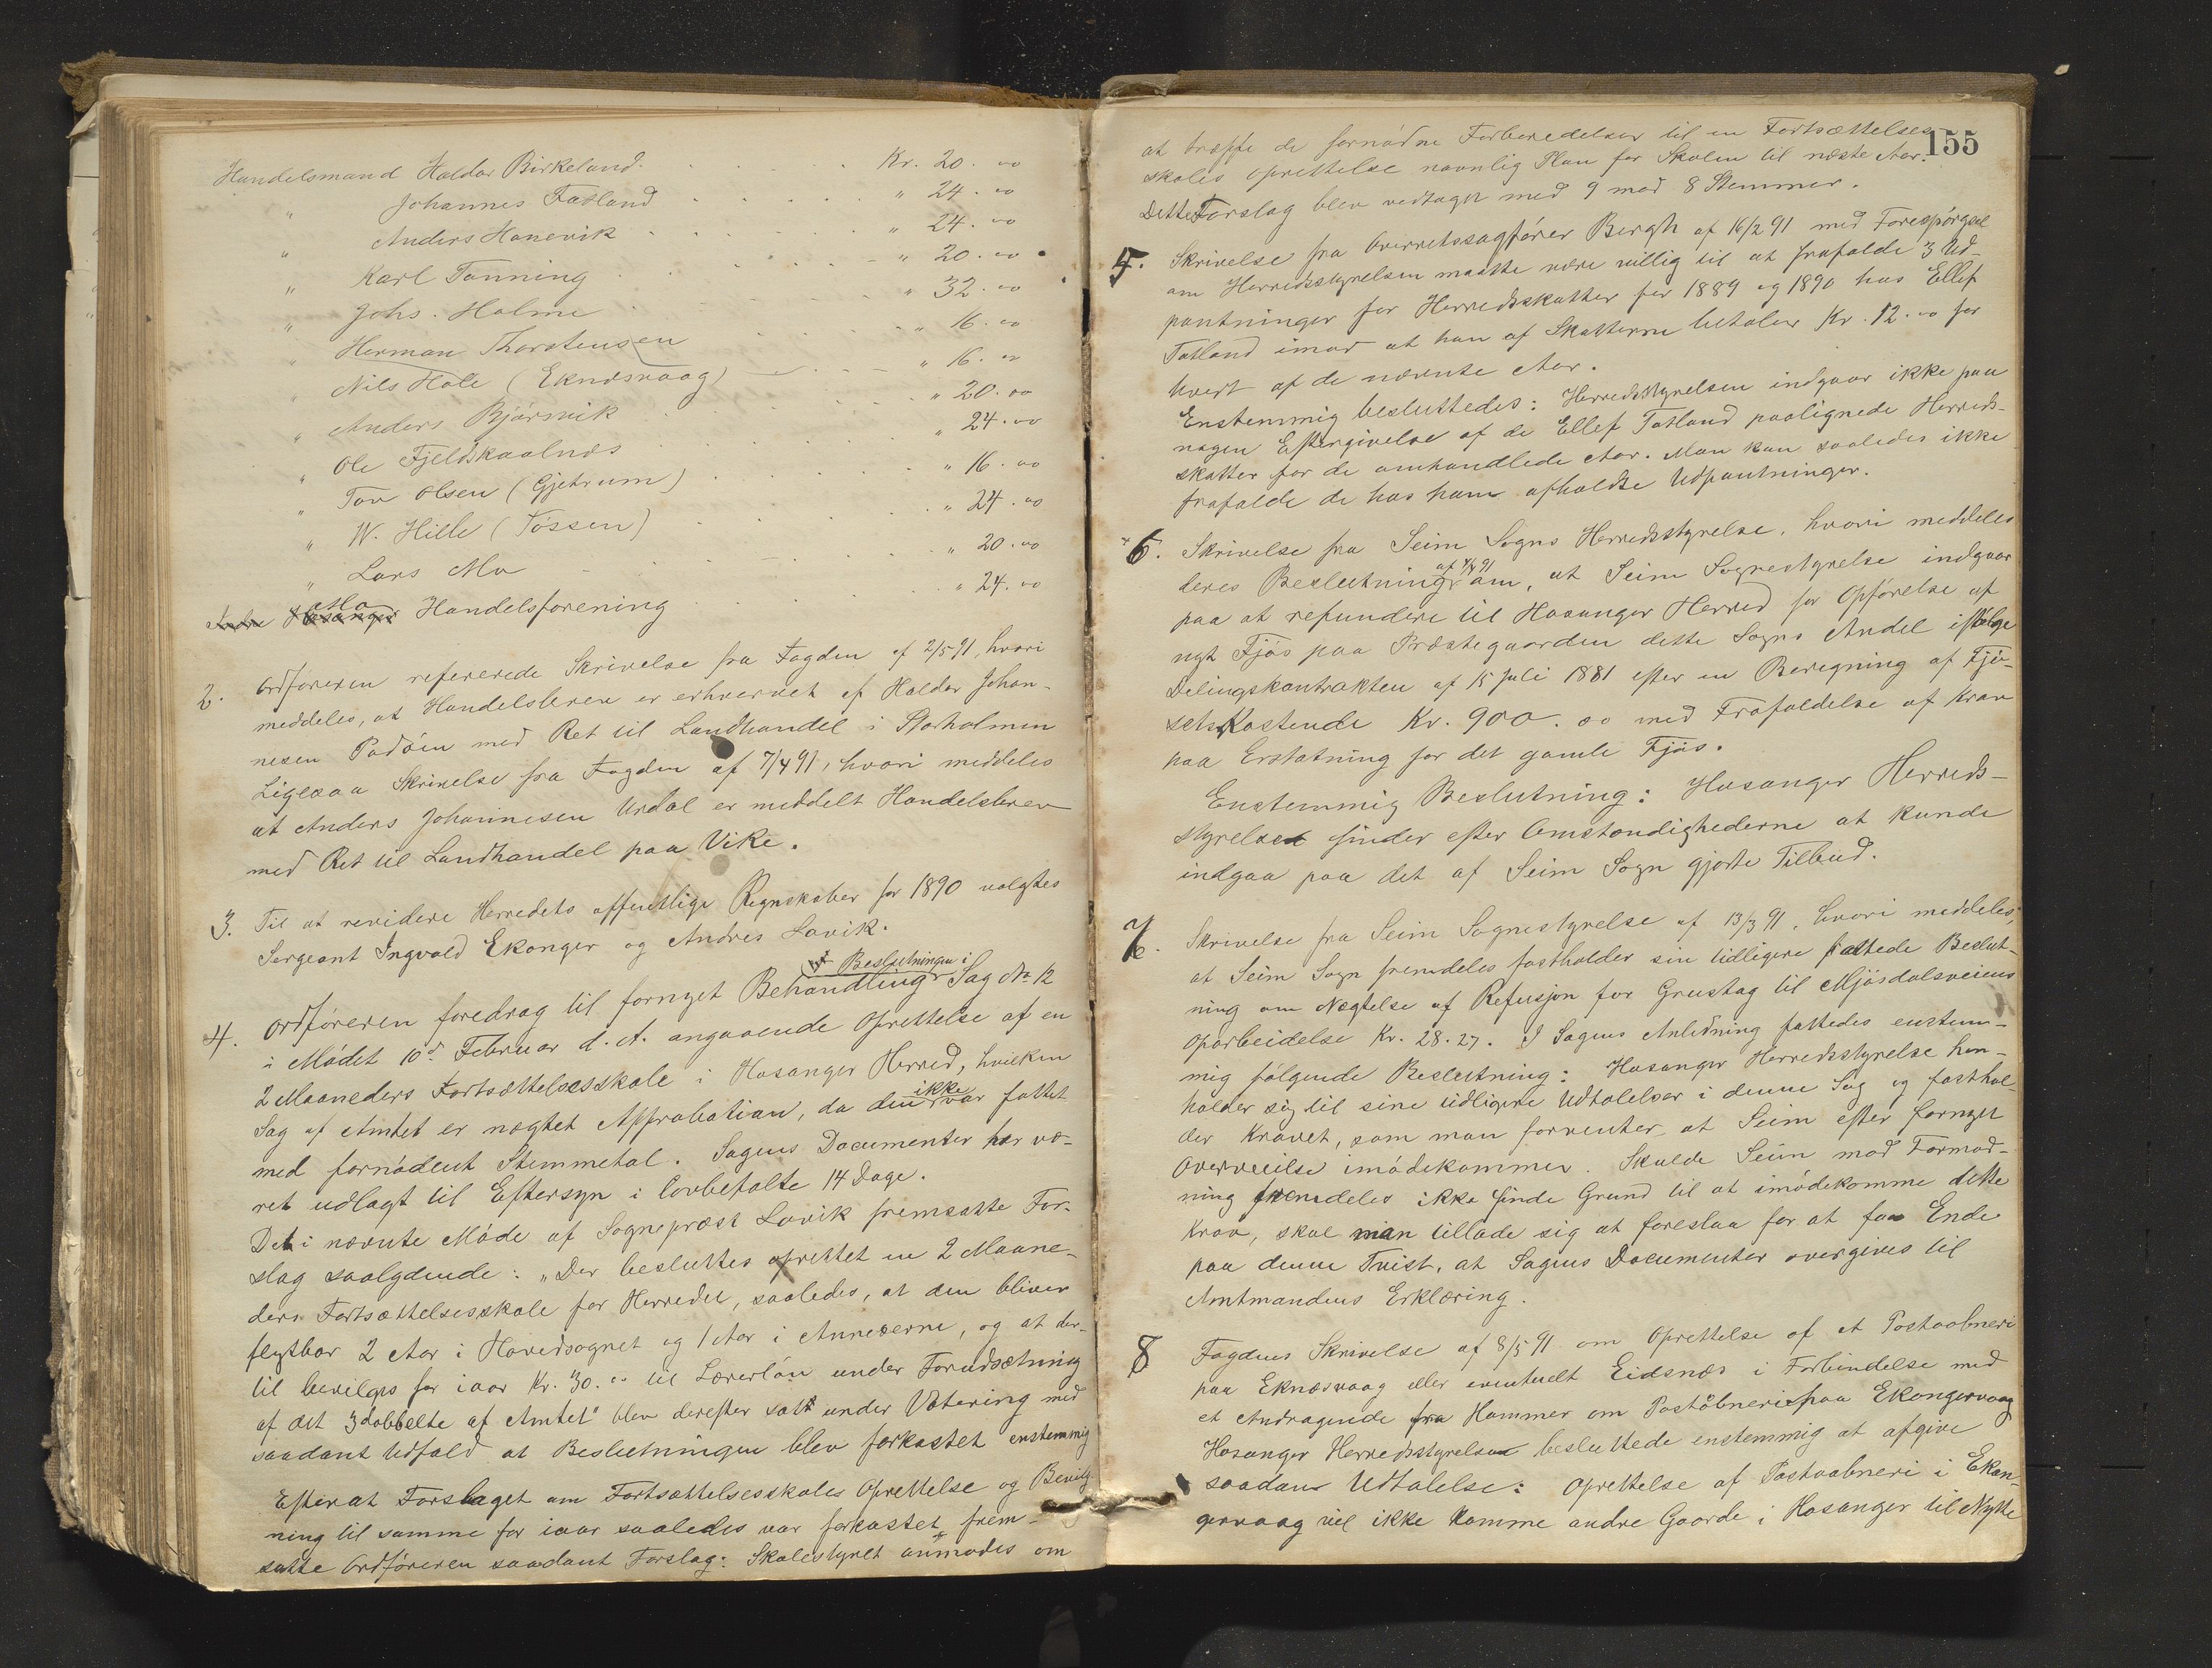 Handelsmand Haldor Birkeland. Kr. 20.00
" Johannes Fatland " 24.00
" Anders Hanevik " 24.00
" Karl Tonning " 20.00
" Johs. Holme " 32.00
" Herman Thorstensen " 16.00
" Nils Hole (Eknesvaag) " 16.00
" Anders Bjørsvik " 20.00
" Ole Fjeldskaalnes " 24.00
" Tov Olsen (Gjetrum) " 16.00
" W. Hille (Tøssen) " 24.00
" Lars Mo " 20.00
Mo Handelsforening " 24.00
2. Ordføreren refererede Skrivelse fra Fogden af 2/5 91, hvori
meddeles, at Handelsbrev er erhvervet af Haldor Johan-
nesen Padøen med Ret til Landhandel i Storholmen
Ligesaa Skrivelse fra Fogden af 7/4 91, hvori meddeles
at Anders Johannesen Urdal er meddelt Handelsbrev
med Ret til Landhandel paa Vike.
3. Til at revidere Herredets offentlige Regnskaber for 1890 valgtes
Sergeant Ingvald Ekanger og Andres Lavik.
Beslutningen i
4. Ordføreren foredrog til fornyet Behandling Sag No 12
i Mødet 10d Februar d. A. angaaende Oprettelse af en
2 Maaneders Fortsættelsesskole i Hosanger Herred, hvilken
Sag af Amtet er nægtet Approbation, da den ikke var fattet
med fornødent Stemmetal. Sagens Documenter har væ-
ret udlagt til Eftersyn i lovbefalte 14 Dage.
Det i nævnte Møde af Sognepræst Lavik fremsatte For-
slag saalydende: "Der besluttes oprettet en 2 Maane-
ders Fortsættelsesskole for Herredet, saaledes, at den bliver
flytbar 2 Aar i Hovedsognet og 1 Aar i Annexerne, og at der-
til bevilges for iaar Kr. 30.00 til Lærerløn under Forudsætning
af det 3dobbelte af Amtet" blev derefter sat under Votering med
saadant Udfald at Beslutningen blev forkastet enstemmig
Efterat Forslaget om Fortsættelsesskoles Oprettelse og Bevilg-
ning til samme for iaar saaledes var forkastet, frem-
satte Ordføreren saadant Forslag: Skolestyret anmodes om
155
at træffe de fornødne Forberedelser til en Fortsættelses-
skoles oprettelse navnlig Plan for Skolen til næste Aar.
Dette Forslag blev vedtaget med 9 mod 8 Stemmer.
5. Skrivelse fra Overretssagfører Bergh af 16/2 91 med Forespørgsel
om Herredsstyrelsen maatte være villig til at frafalde 3 Ud-
pantninger for Herredsskatter for 1889 og 1890 hos Ellef
Fatland imod at han af Skatterne betaler Kr. 12.00 for
hvert af de nævnte Aar.
Enstemmig besluttedes: Herredsstyrelsen indgaar ikke paa
nogen Eftergivelse af de Ellef Fatland paalignede Herreds-
skatter for de omhandlede Aar. Man kan saaledes ikke
frafalde de hos ham afholdte Udpantninger.
6. Skrivelse fra Seim Sogns Herredsstyrelse, hvori meddeles
deres Beslutning af 4/4 91 om, at Seim Sognestyrelse indgaar
paa at refundere til Hosanger Herred for Opførelse af
nyt Fjøs paa Præstegaarden dette Sogns Andel ifølge
Delingskontrakten af 15 Juli 1881 efter en Beregning af Fjø-
sets Kostende Kr. 900.00 med Frafaldelse af Krav
paa Erstatning for det gamle Fjøs.
Enstemmig Beslutning: Hosanger Herreds-
styrelse finder efter Omstændighederne at kunde
indgaa paa det af Seim Sogn gjorte Tilbud.
7. Skrivelse fra Seim Sognestyrelse af 13/3 91, hvori meddeles,
at Seim Sogn fremdeles fastholder sin tidligere fattede Beslut-
ning om Nægtelse af Refusjon for Grustag til Mjøsdalsveiens
Oparbeidelse Kr. 28.27. I Sagens Anledning fattedes enstem-
mig følgende Beslutning: Hosanger Herredsstyrelse hen-
holder sig til sine tidligere Udtalelser i denne Sag og fasthol-
der Kravet, som man forventer, at Seim efter fornyet
Overveielse imødekommer. Skulde Seim mod Formod-
ning fremdeles ikke finde Grund til at imødekomme dette
Krav, skal man tillade sig at foreslaa for at faa Ende
paa denne Tvist, at Sagens Documenter overgives til
Amtmandens Erklæring.
8 Fogdens Skrivelse af 8/5 91 om Oprettelse af et Postaabneri
paa Eknæsvaag eller eventuelt Eidsnæs i Forbindelse med
et Andragende fra Hammer om Postaabneri paa Ekangervaag
Hosanger Herredsstyrelse besluttede enstemmig at afgive
saadan Udtalelse: Oprettelse af Postaabneri i Ekan-
gervaag vil ikke komme andre Gaarde i Hosanger til Nytte